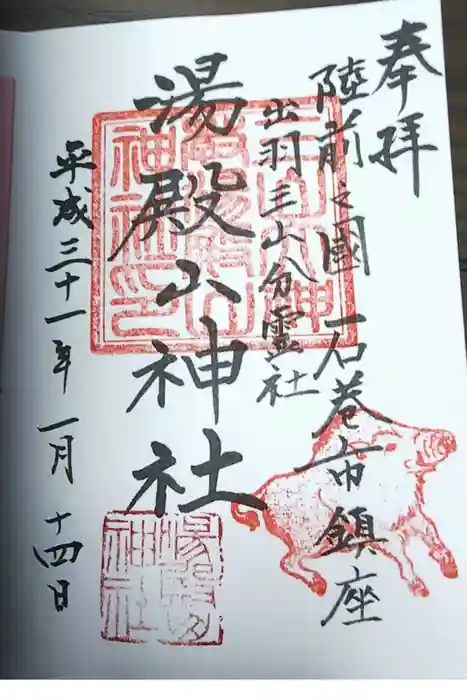 奉拝
陸前之國 石巻市鎮座
出羽三山分霊社
湯殿山神社
平成三十一年一月十四日
湯殿山神社